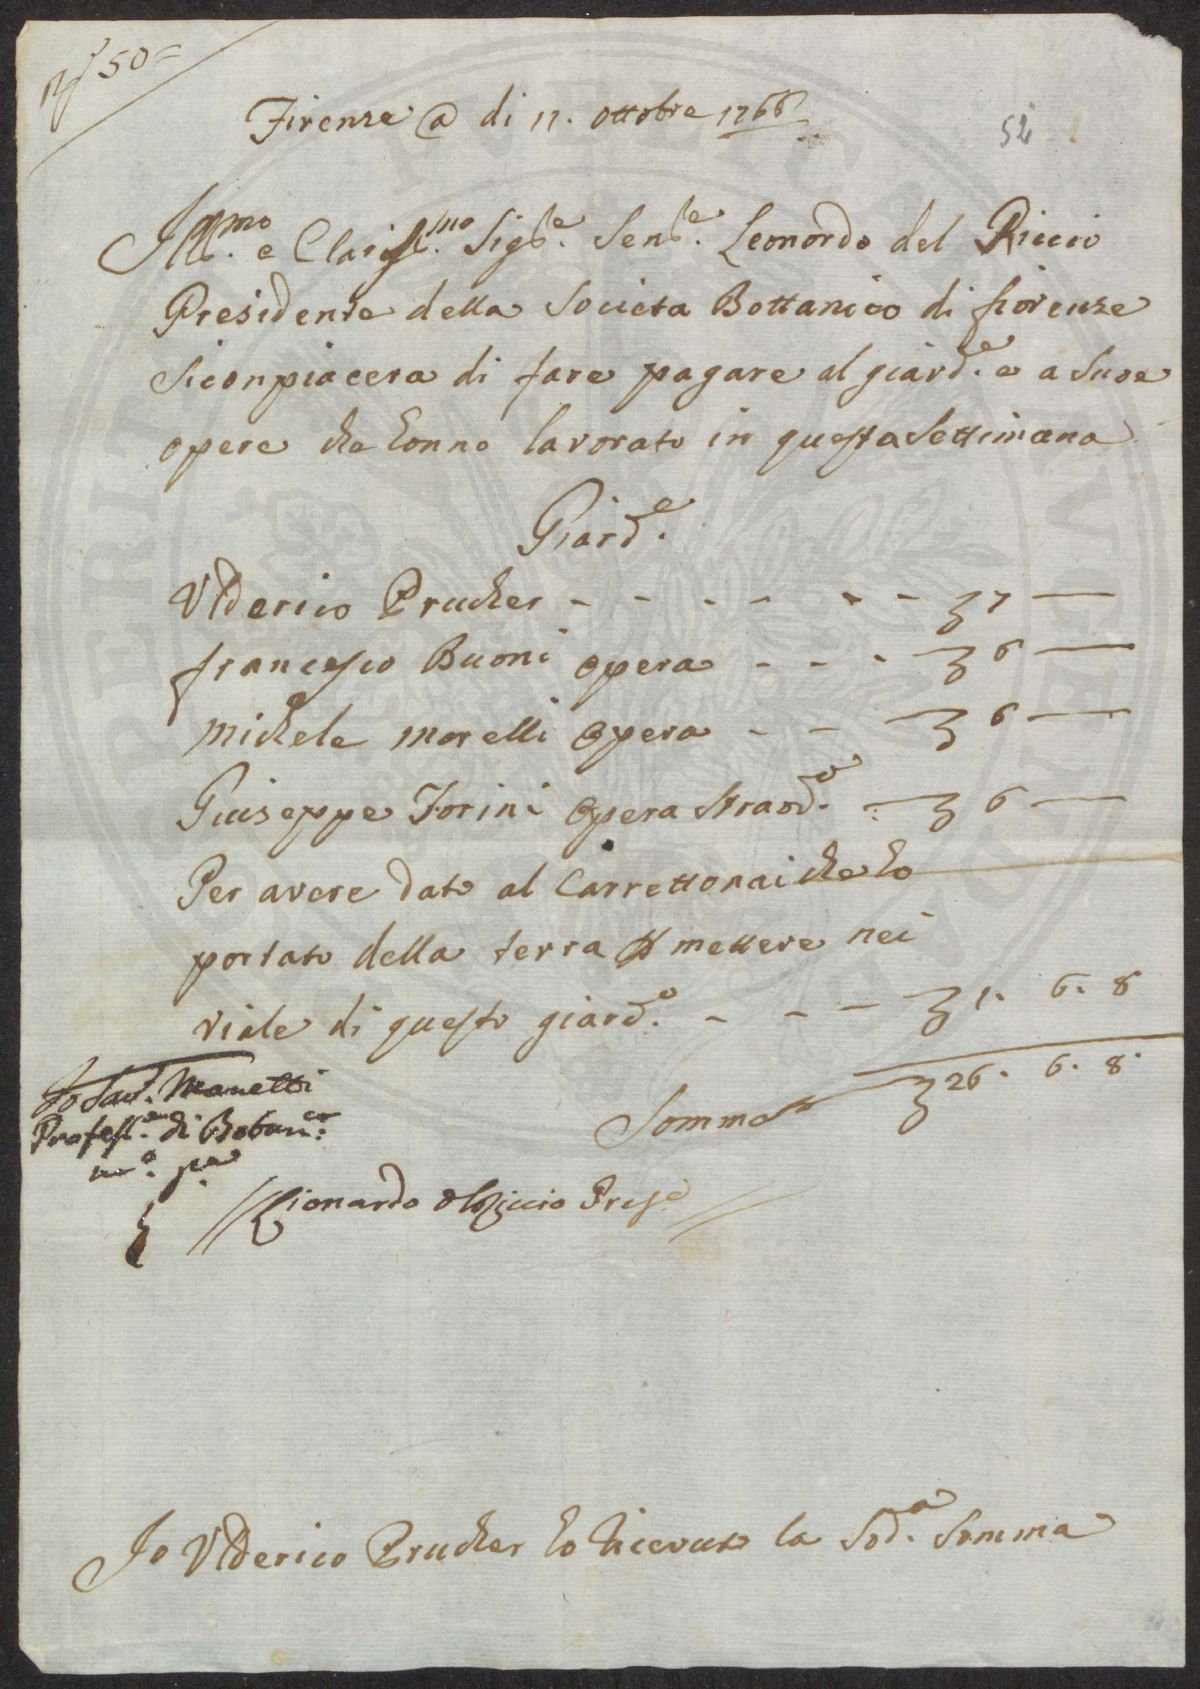 N.° 50=
Firenze @ di 11. ottobre 1766
52
Ill.mo e Clariss.mo Sig.re Sen.re Leonordo del Riccio
Presidente della Societa Bottanico di fiorenze
Siconpiacera di fare pagare al giard.e e a Suoe
opere che honno lavorato in questa Settimana
Giard.e
Ulderico Prucher - - - - - - ʒ 7 —
francesco Buoni opera - - - ʒ 6 —
michele morelli opera - - ʒ 6 —
Giuseppe Forini opera straod.a : ʒ 6 —
Per avere dato al Carrettonai che ho
portato della terra p mettere nei
viale di questo giard.o - - - ʒ 1. 6. 8
Somma ʒ 26. 6. 8.
Io Sav. Manetti
Profess.re di Botan.ca
m.o p.a
Lionardo del Riccio Pres.e
Io Ulderico Prucher ho ricevuto la Sod.a Somma